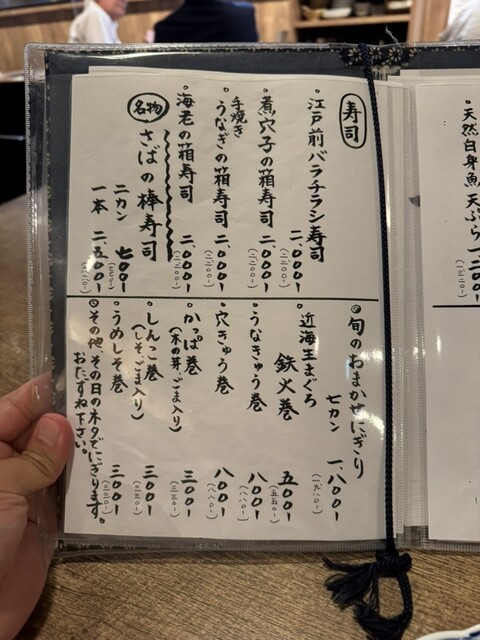 寿司
・江戸前バラチラシ寿司 二、〇〇〇ー
(二二〇〇ー)
・煮穴子の箱寿司 二、〇〇〇ー
(二二〇〇ー)
・手焼き
うなぎの箱寿司 二、〇〇〇ー
(二二〇〇ー)
・海老の箱寿司 二、〇〇〇ー
(二二〇〇ー)
名物 さばの棒寿司
二カン 七〇〇ー
一本 二、五〇〇ー
◎旬のおまかせにぎり
七カン 一、八〇〇ー
(一九八〇ー)
・近海生まぐろ
鉄火巻 五〇〇ー
(五五〇ー)
・うなきゅう巻 八〇〇ー
(八八〇ー)
・穴きゅう巻 八〇〇ー
(八八〇ー)
・かっぱ巻 三〇〇ー
(木の芽、ごま入り) (三三〇ー)
・しんこ巻 三〇〇ー
(しそ、ごま入り) (三三〇ー)
・うめしそ巻 三〇〇ー
(三三〇ー)
◎その他、その日のネタでにぎります。
おたずね下さい。
天然白身魚 天ぷら 一、二〇〇ー